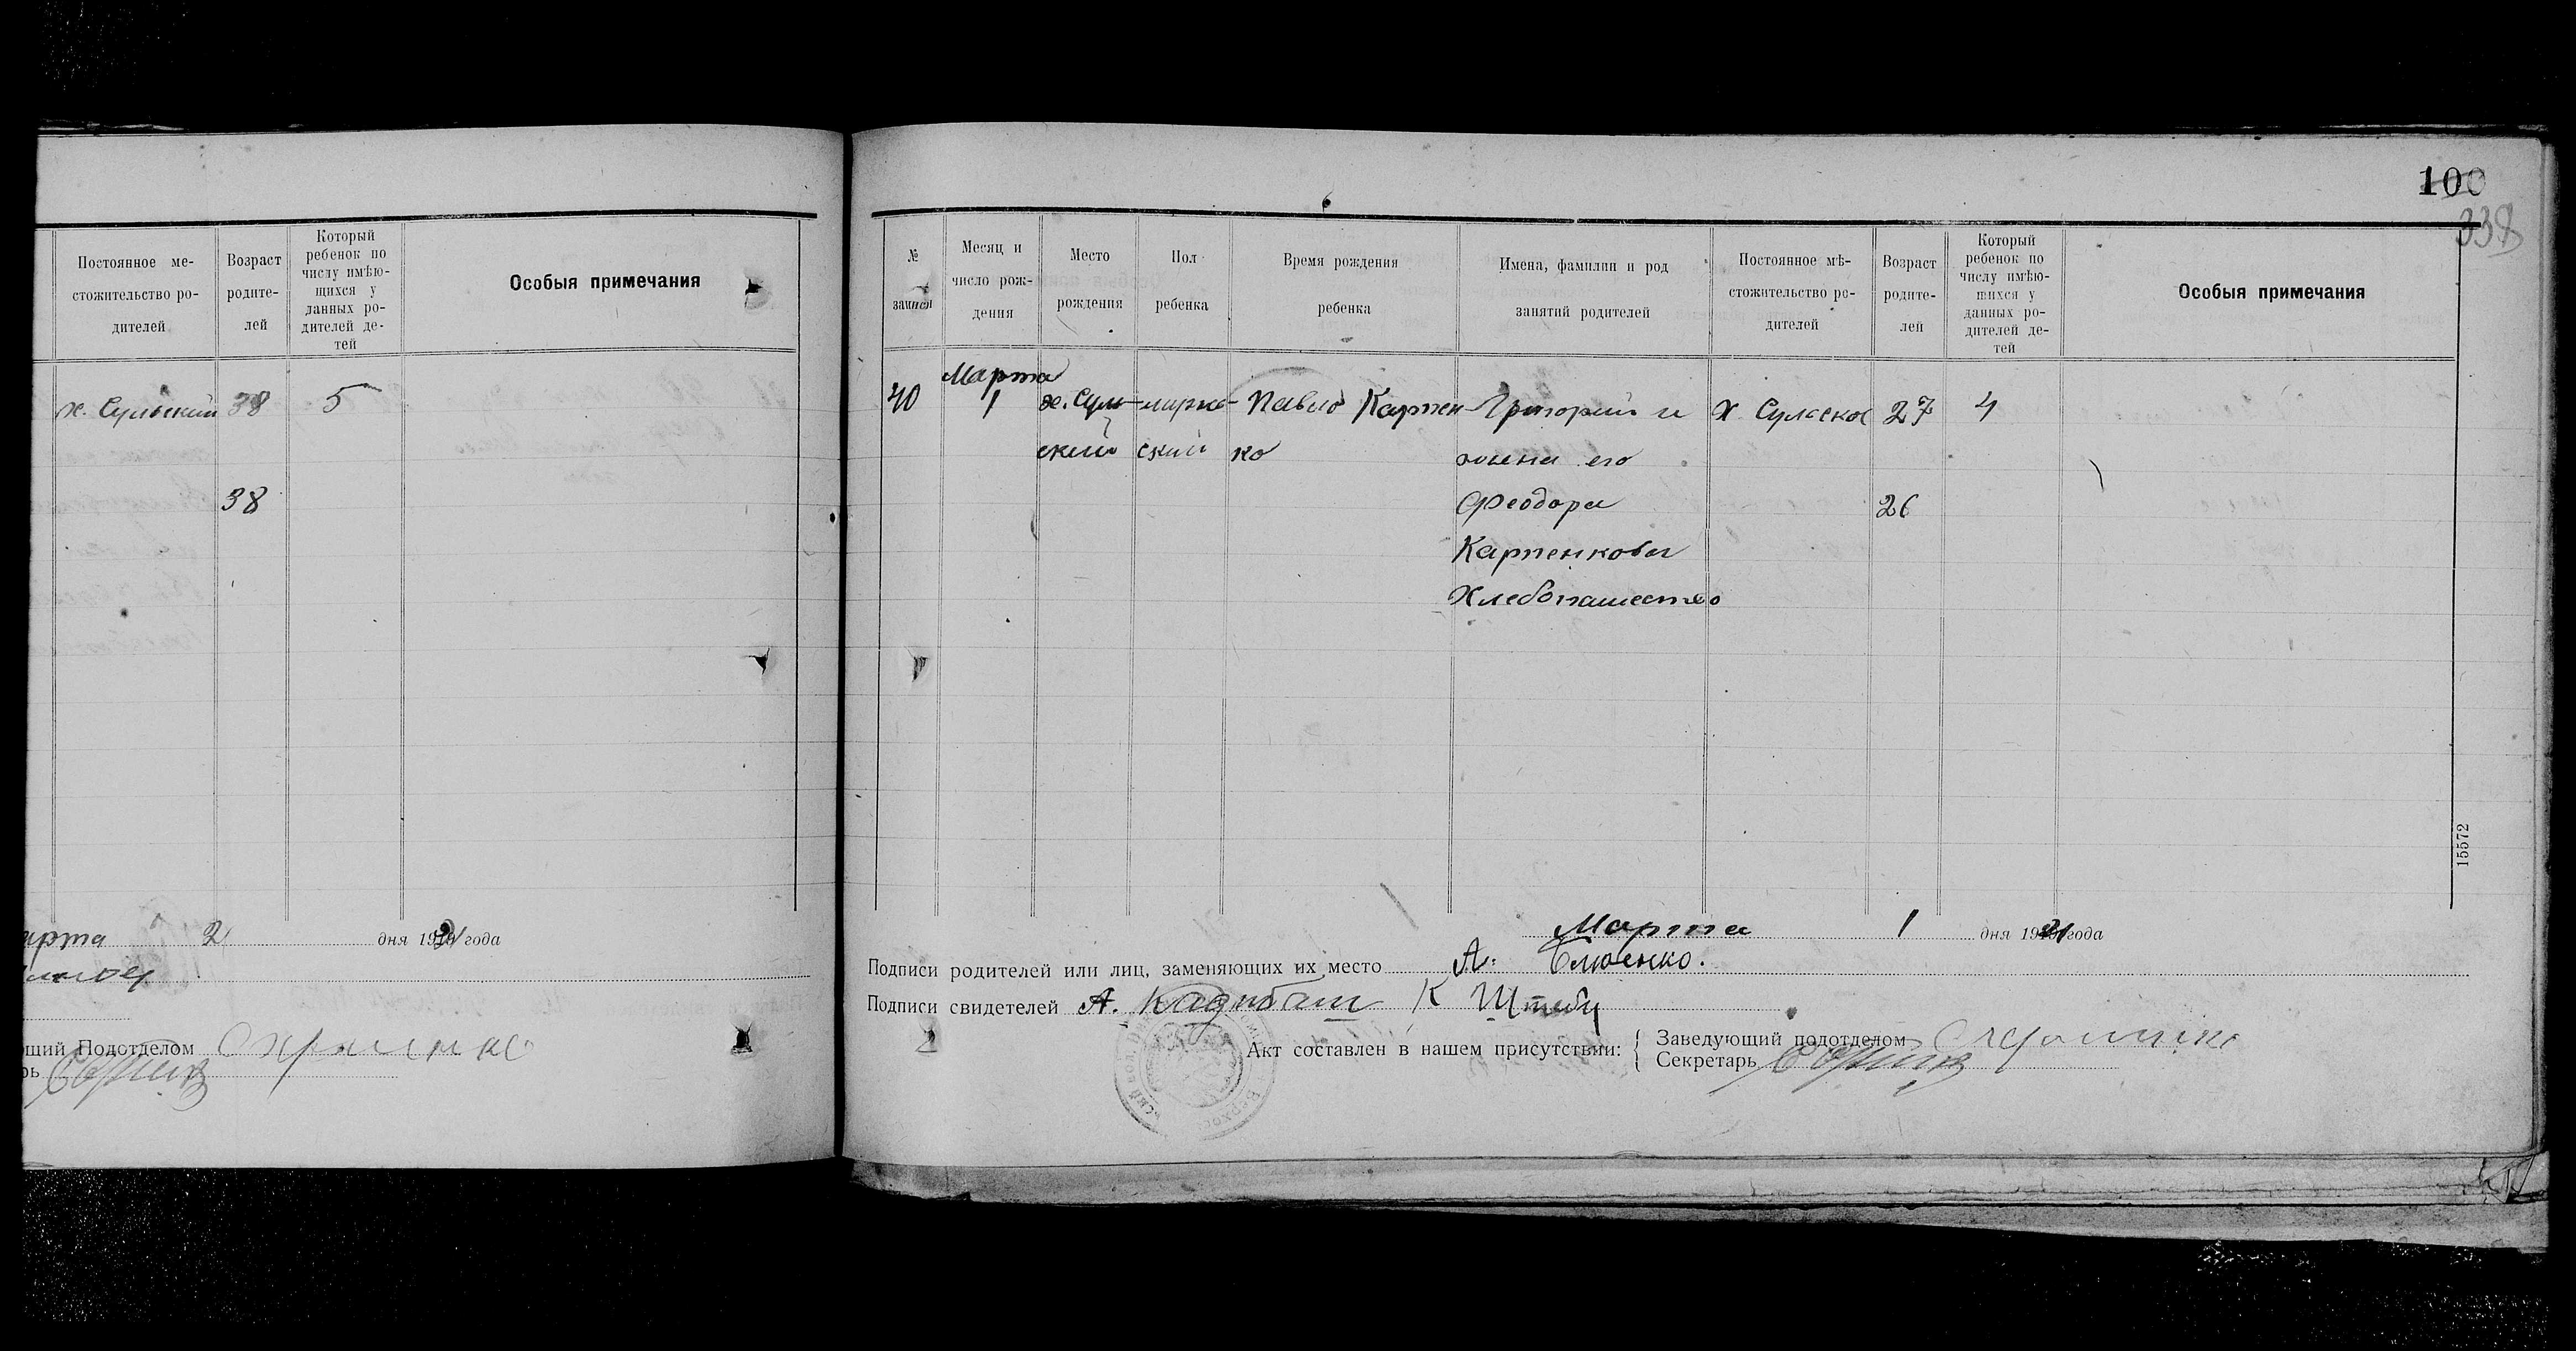 100
338
Постоянное ме-
стожительство ро-
дителей
Возраст
родите-
лей
Который
ребенок по
числу имѣю-
щихся у
данных ро-
дителей де-
тей
Особыя примечания
х. Сульский 38 5
38
арта 2 дня 1921 года
щий Подотделом
рь
№
записи
Месяц и
число рож-
дения
Место
рождения
Пол
ребенка
Время рождения
ребенка
Имена, фамилии и род
занятий родителей
Постоянное мѣ-
стожительство ро-
дителей
Возраст
родите-
лей
Который
ребенок по
числу имѣю-
щихся у
данных ро-
дителей де-
тей
Особыя примечания
Марта
40 1 х. Суль- мужс- Павло Карпен- Григорий и х Сульской 27 4
ский ский ко жена его
Феодора 26
Карпенковы
Хлебопашество
15572
Марта 1 дня 1921 года
Подписи родителей или лиц, заменяющих их место А.
Подписи свидетелей А. К
Акт составлен в нашем присутствии:
Заведующий подотделом
Секретарь